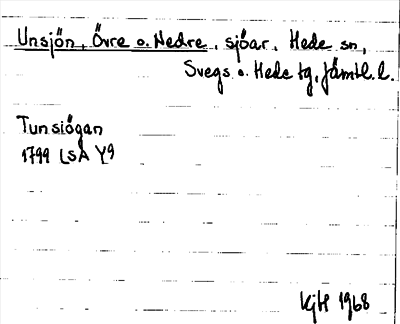 Unsjön, Övre o. Nedre, sjöar, Hede sn,
Svegs o. Hede tg, Jämtl. l.
Tunsiögan
1799 LSA Y9
KjH 1968